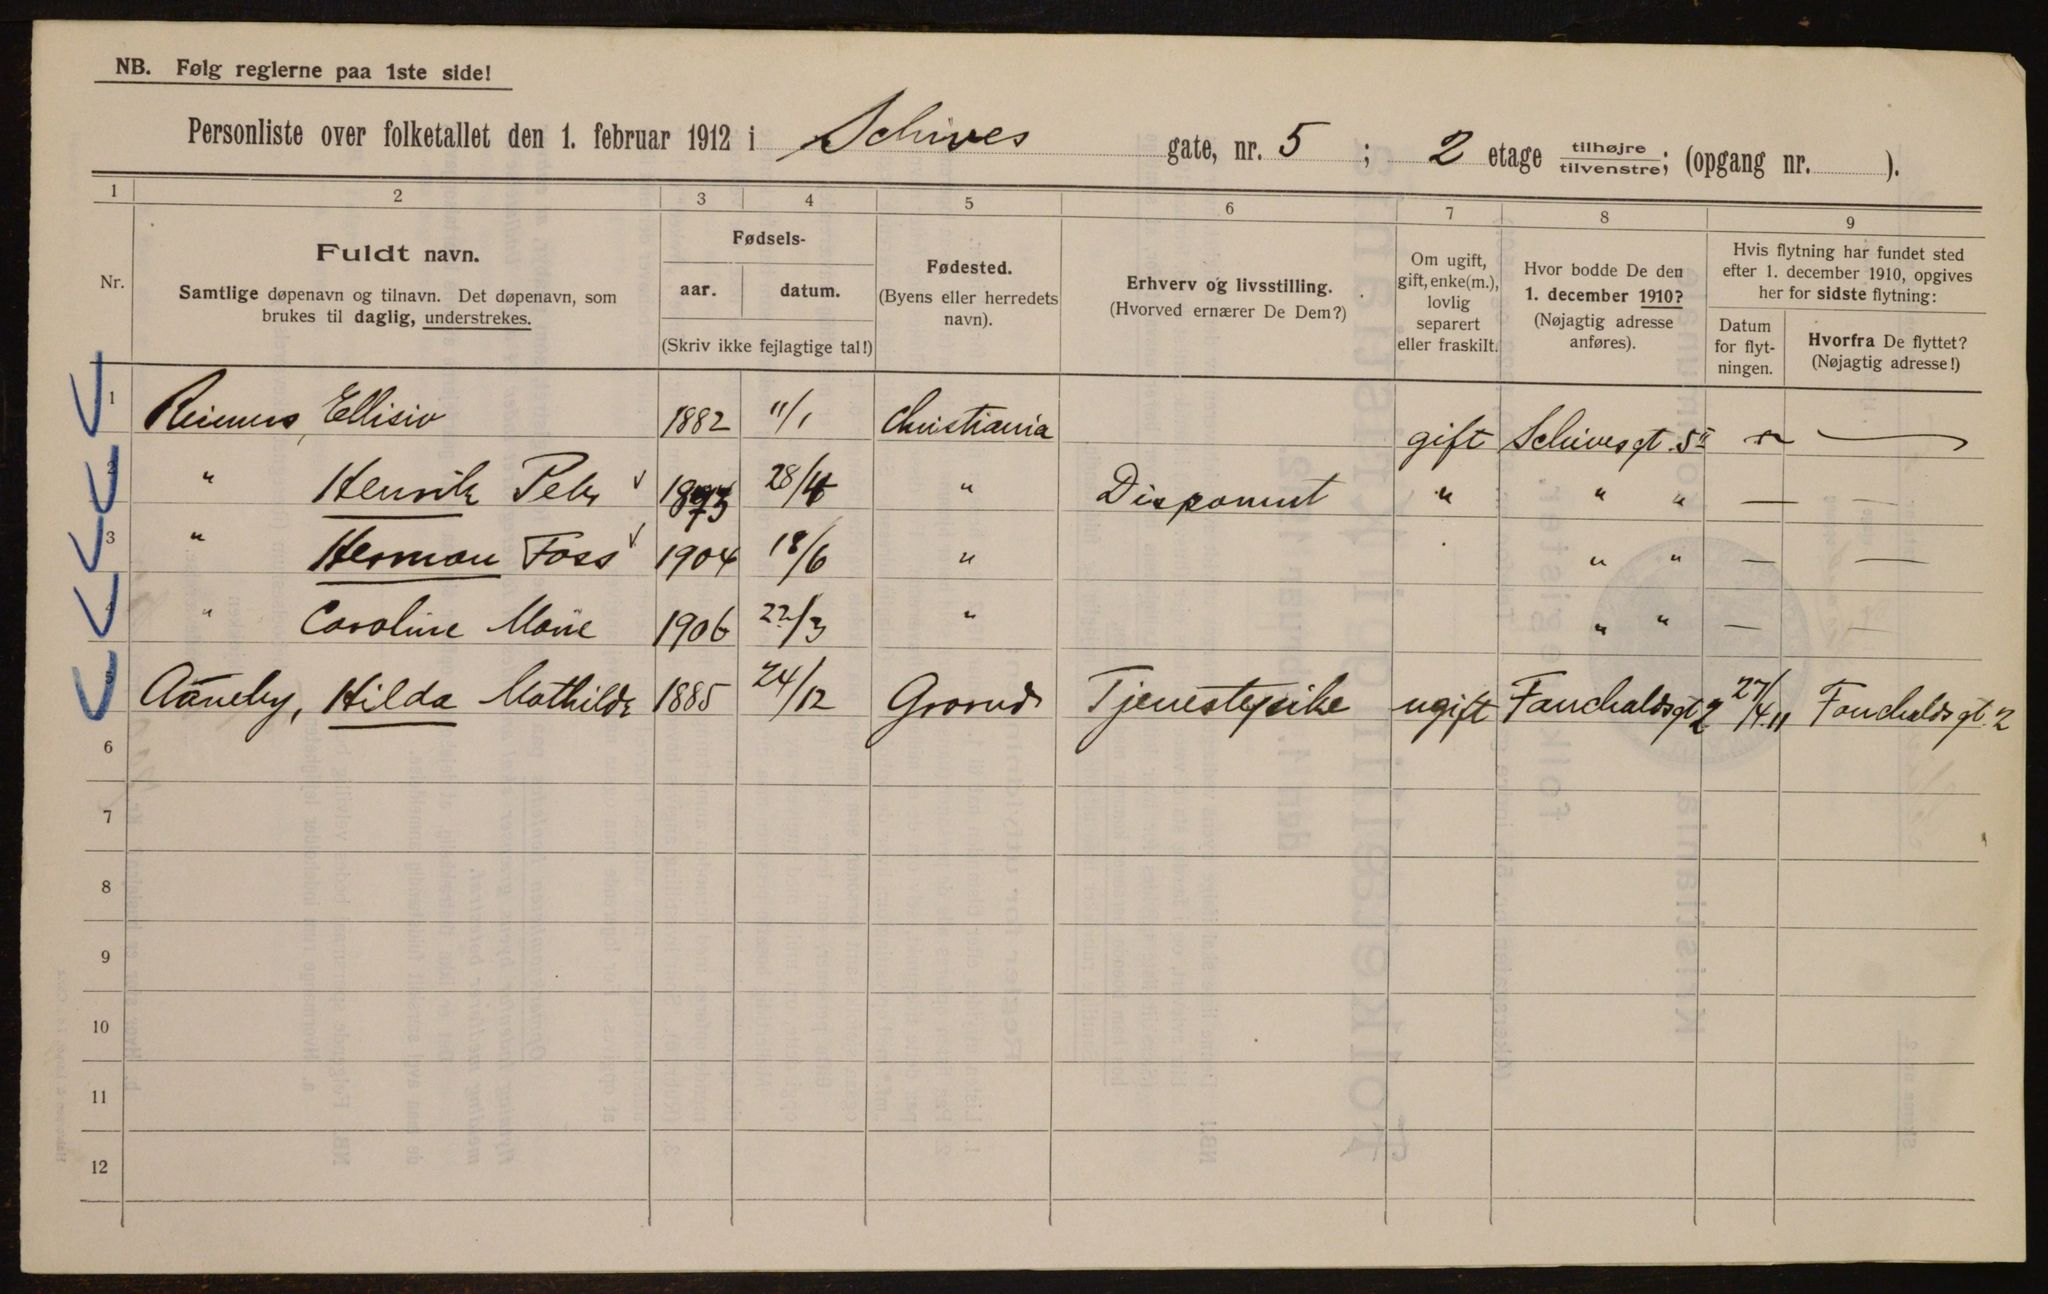 NB. Følg reglerne paa 1ste side!
Personliste over folketallet den 1. februar 1912 i Schives gate, nr. 5 ; 2 etage tilhøjre/tilvenstre; (opgang nr. ).
1 2 3 4 5 6 7 8 9
Nr.
Fuldt navn.
Samtlige døpenavn og tilnavn. Det døpenavn, som
brukes til daglig, understrekes.
Fødsels-
aar. datum.
(Skriv ikke fejlagtige tal!)
Fødested.
(Byens eller herredets
navn).
Erhverv og livsstilling.
(Hvorved ernærer De Dem?)
Om ugift,
gift, enke(m.),
lovlig
separert
eller fraskilt.
Hvor bodde De den
1. december 1910?
(Nøjagtig adresse
anføres).
Hvis flytning har fundet sted
efter 1. december 1910, opgives
her for sidste flytning:
Datum
for flyt-
ningen.
Hvorfra De flyttet?
(Nøjagtig adresse!)
1 Reimers, Ellisiv 1882 11/1 Christiania gift Schivesgt. 5II — —
2 " Henrik Peter 1873 28/4 " Disponent " " " — —
3 " Herman Foss 1904 18/6 " " " — —
4 " Caroline Marie 1906 22/3 " " " — —
5 Aaneby, Hilda Mathilde 1885 24/12 Grorud Tjenestepike ugift Fauchaldsgt 2 27/4 11 Fauchaldsgt. 2
6
7
8
9
10
11
12